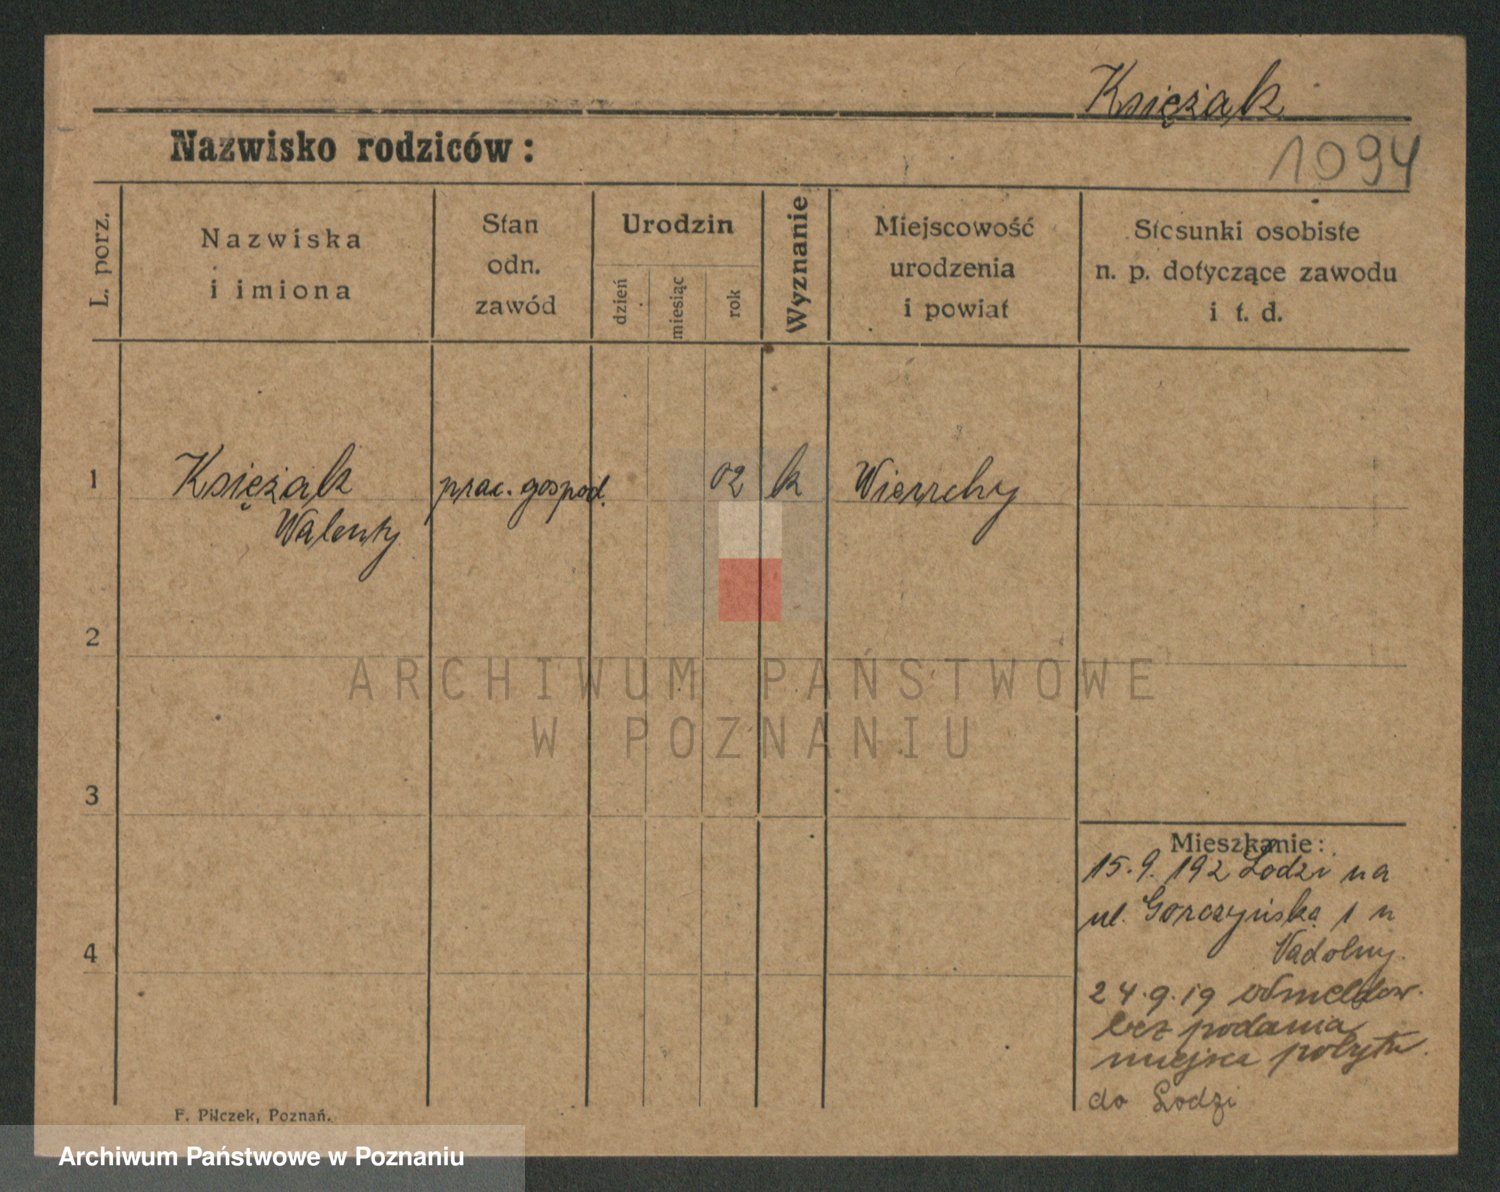 Księżak
1094
Nazwisko rodziców:
L. porz.
Nazwiska
i imiona
Stan
odn.
zawód
Urodzin
dzień
miesiąc
rok
Wyznanie
Miejscowość
urodzenia
i powiat
Stosunki osobiste
n. p. dotyczące zawodu
i t. d.
1
Księżak
Walenty
prac. gospod.
02
k
Wierrchy
2
ARCHIWUM PAŃSTWOWE
W POZNANIU
3
4
Mieszkanie:
15.9.192 Łodzi na
ul. Gorczyńska 1 n
Nadolny
24.9.19 odmeldow.
bez podania
miejsca pobytu
do Łodzi
F. Pilczek, Poznań.
Archiwum Państwowe w Poznaniu